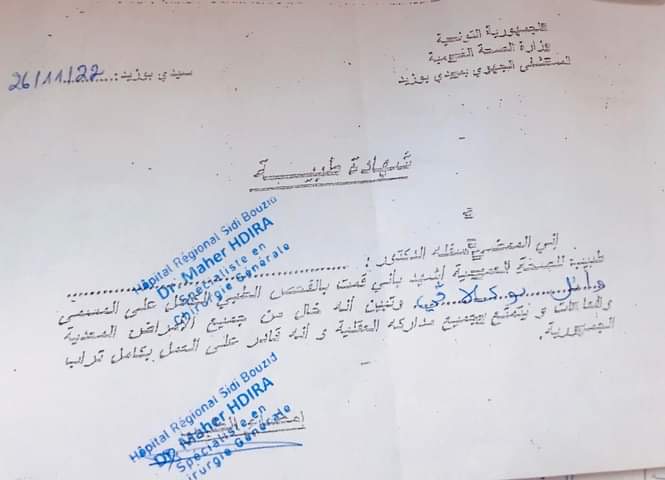 الجمهورية التونسية
وزارة الصحة العمومية
المستشفى الجهوي بسيدي بوزيد
سيدي بوزيد: 26/11/22
شهادة طبيبة
Hôpital Régional Sidi Bouzid
Dr. Maher HDIRA
Spécialiste en
Chirurgie Générale
إني الممضي أسفله الدكتور :
طبيب للصحة العمومية أشهد بأني قمت بالفحص الطبي على المسمى
وائل وتبين أنه خال من جميع الأمراض المعدية
والعاهات و يتمتع بجميع مداركه العقلية و أنه قادر على العمل بكامل تراب
الجمهورية.
Hôpital Régional Sidi Bouzid
Dr. Maher HDIRA
Spécialiste en
Chirurgie Générale